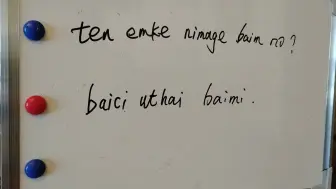 ten emke nimage baim no?
baici uthai baimi.